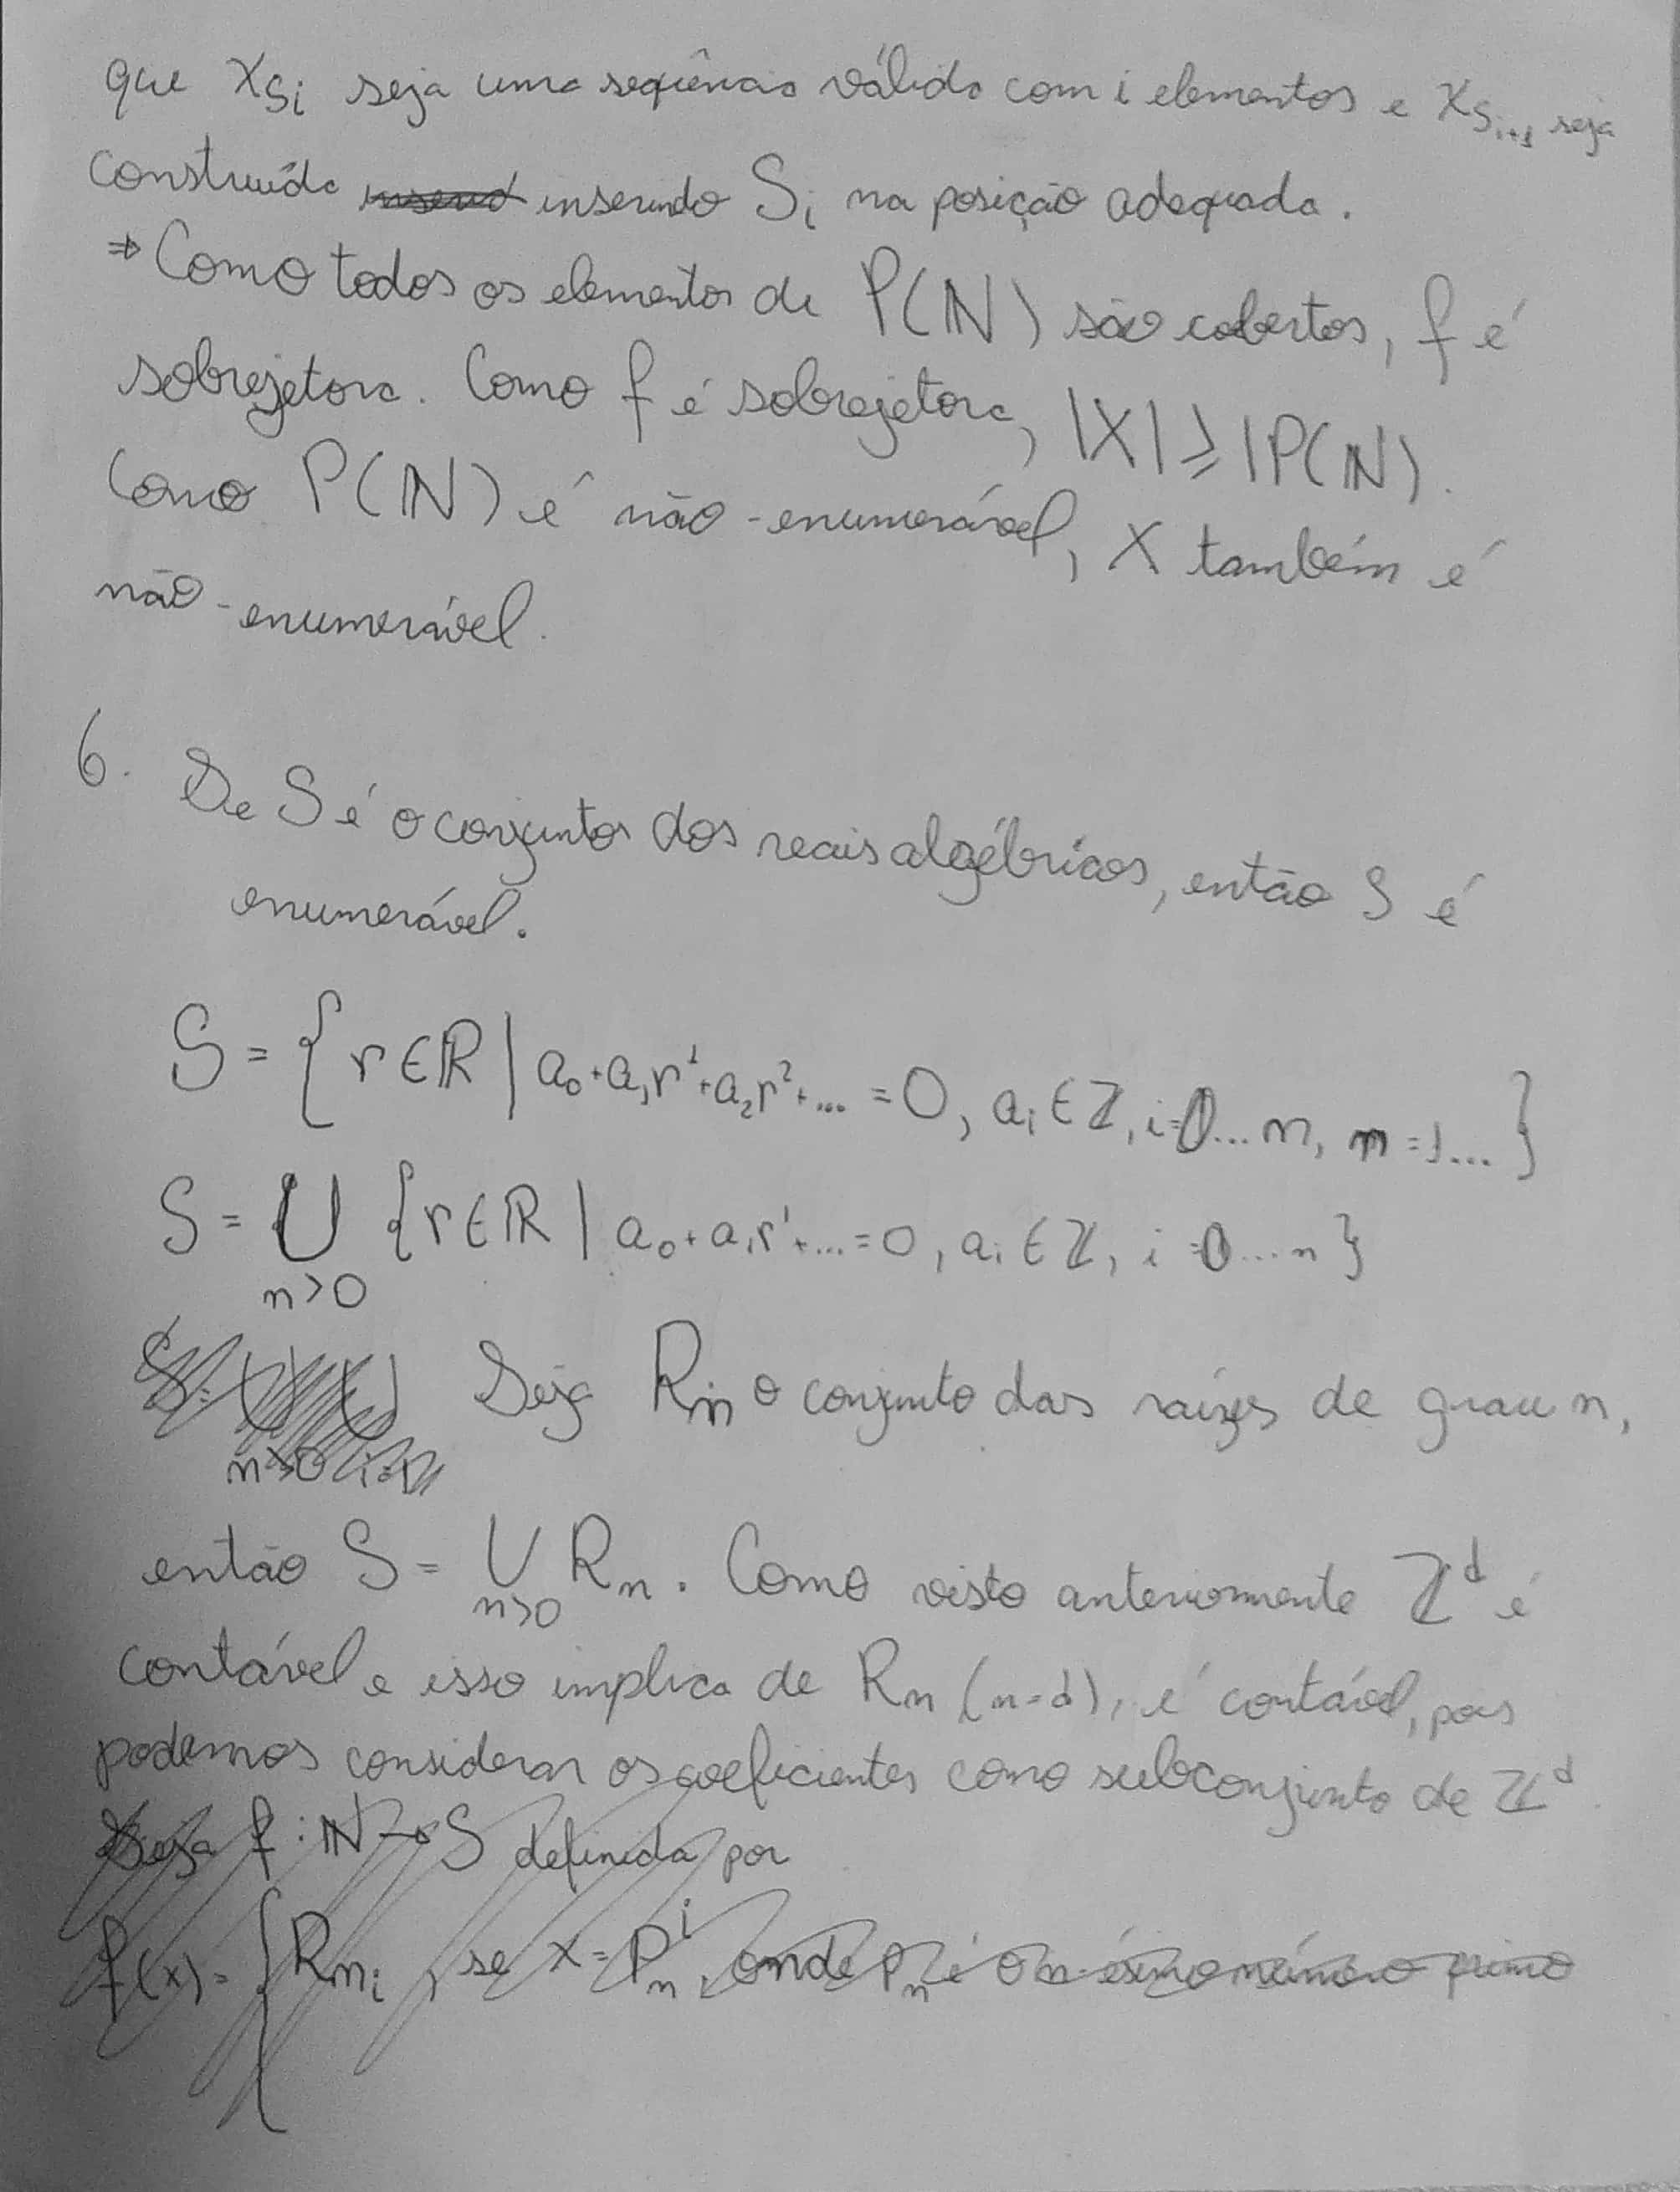 que X_{S_i} seja uma sequência válida com i elementos e X_{S_{i+1}} seja
construída insend inserindo S_i na posição adequada.
⇒ Como todos os elementos de P(ℕ) são cobertos, f é
sobrejetora. Como f é sobrejetora, |X| ≥ |P(ℕ).
Como P(ℕ) é não-enumerável, X também é
não-enumerável.
6. Se S é o conjunto dos reais algébricos, então S é
enumerável.
S = { r ∈ ℝ | a_0 + a_1 r^1 + a_2 r^2 + ... = 0, a_i ∈ ℤ, i=0...n, n=1... }
S = ⋃_{n>0} { r ∈ ℝ | a_0 + a_1 r^1 + ... = 0, a_i ∈ ℤ, i=0...n }
Seja R_n o conjunto das raízes de grau n,
então S = ⋃_{n>0} R_n. Como visto anteriormente ℤ^d é
contável e isso implica de R_n (n=d), é contável, pois
podemos considerar os coeficientes como subconjunto de ℤ^d.
Seja f: ℕ → S definida por
f(x) = { R_{n_i}, se x = P_n^i, onde P_n é o n-ésimo número primo